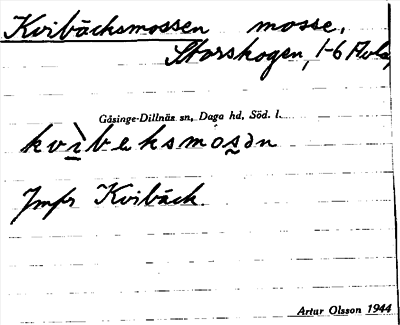 Kvibäcksmossen mosse,
Storskogen, 1-6 Flola,
Gåsinge-Dillnäs sn, Daga hd, Söd. l.
kvìbeksmos̬ən
Jmfr Kvibäck.
Artur Olsson 1944